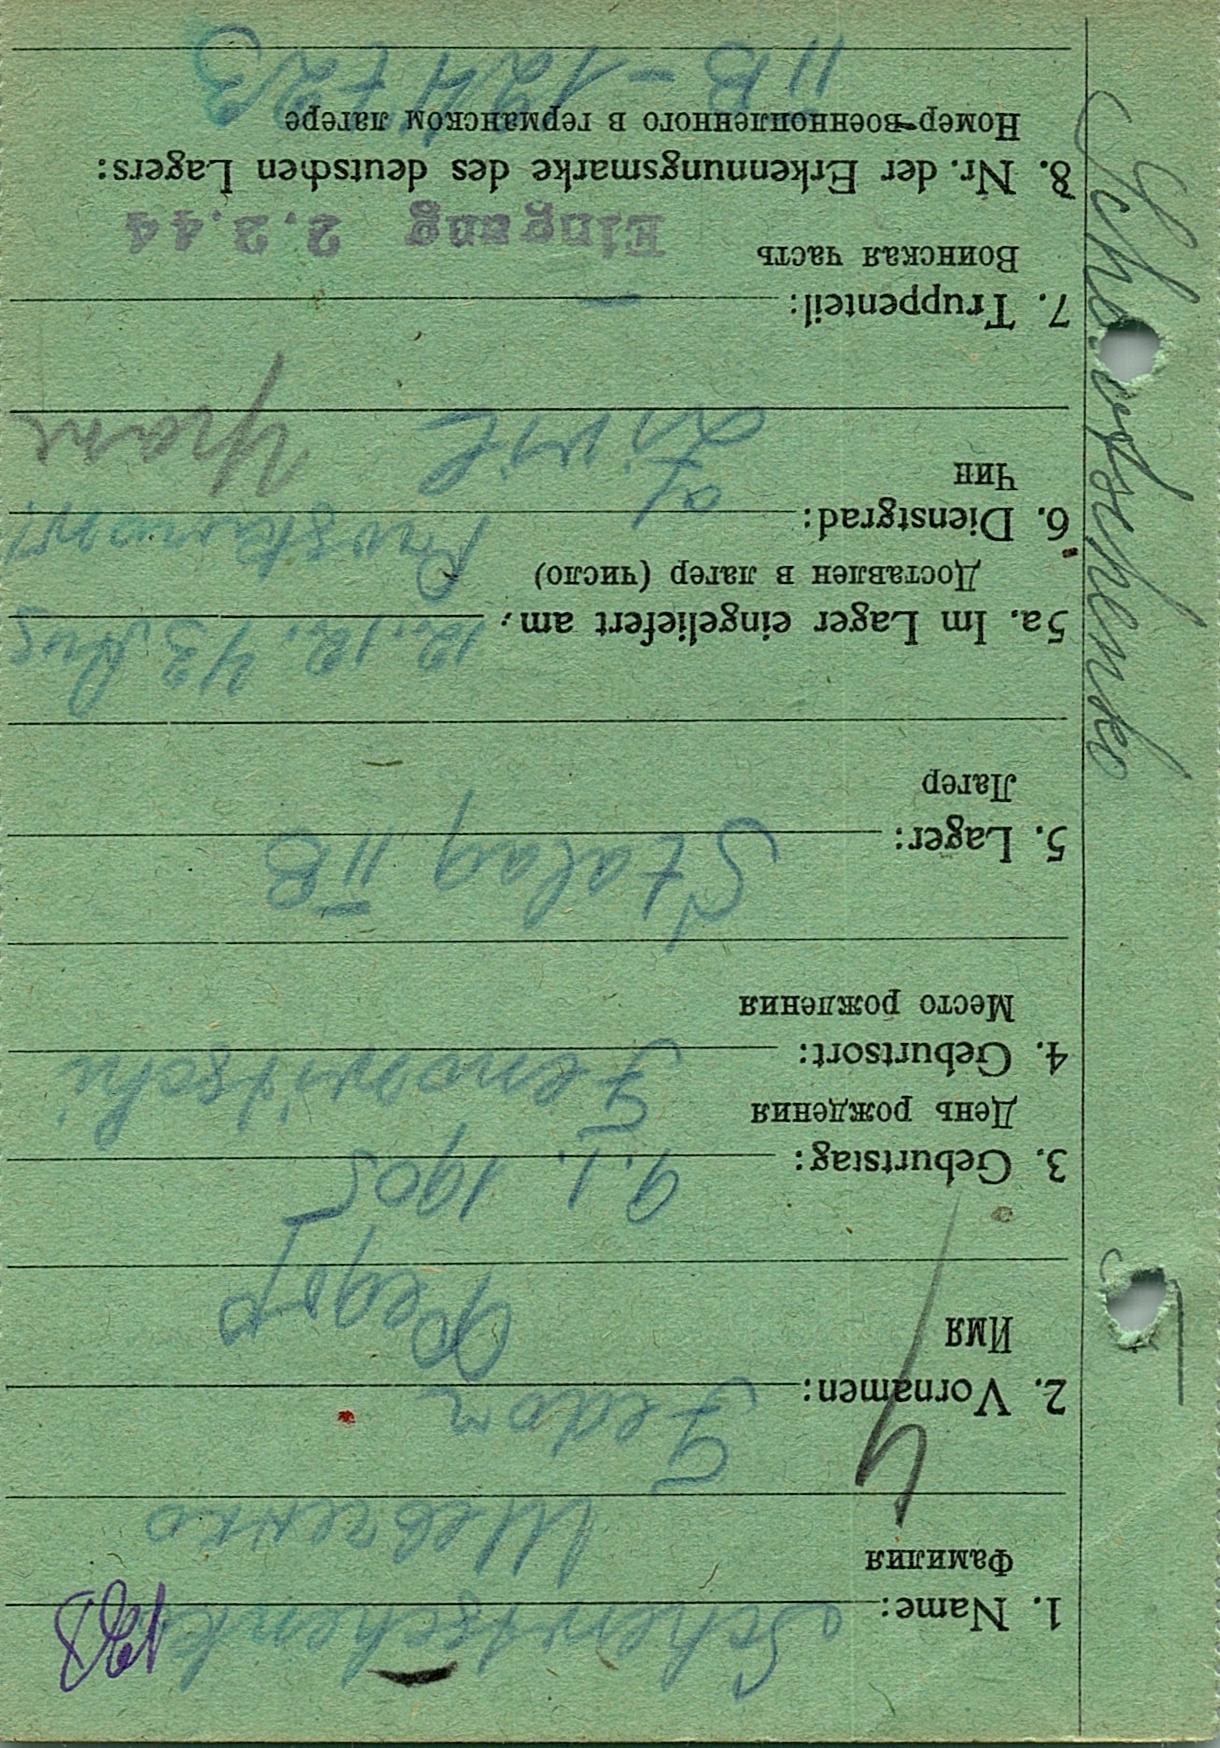 1. Name: Schewtschenko
Фамилия Шевченко
2. Vornamen: Fedor
Имя Федор
3. Geburtstag: 9.1.1905
День рождения
4. Geburtsort:
Место рождения
5. Lager: Stalag II B
Лагер
5a. Im Lager eingeliefert am: 12.12.43 Aus
Доставлен в лагер (число)
6. Dienstgrad:
Чин Zivil
7. Truppenteil: –
Воинская часть
Eingang 2.2.44
8. Nr. der Erkennungsmarke des deutschen Lagers:
Номер военнопленного в германском лагере
II B -